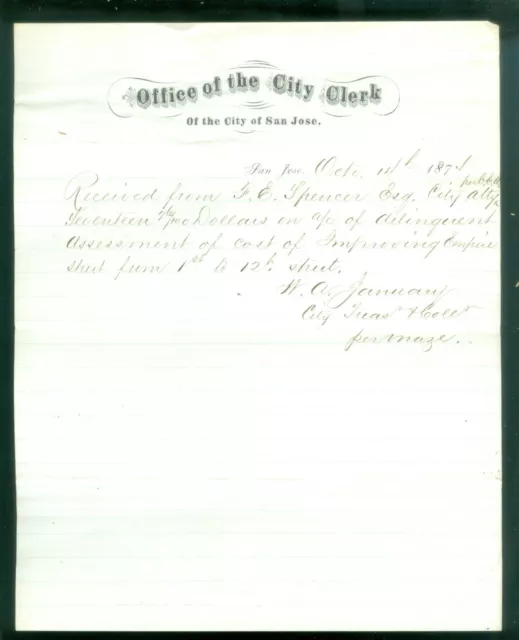 Office of the City Clerk
Of the City of San Jose.
San Jose, Oct. 14th 187
Received from F. E. Spencer Esq. City Atty
Seventeen Dollars on a/c of delinquent
Assessment of cost of Improving Empire
street from 1st to 12th street.
W. A. January
City Treas & Coll
per Maze.